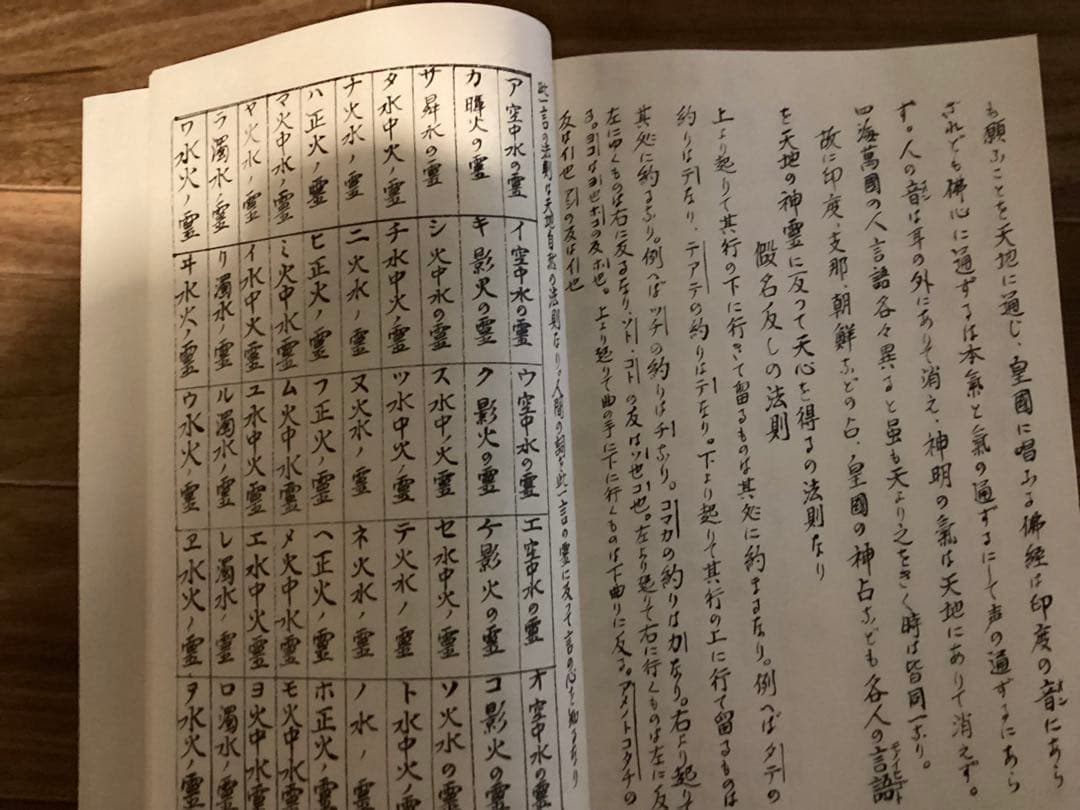 も願ふことを天地に通じ、皇國に唱ふる佛経は印度の音にあら
されども佛心に通ずるは本氣と氣の通ずるにして声の通ずるにあら
ず。人の音は耳の外にありて消え、神明の氣は天地にありて消えず。
四海萬國の人言語各々異ると虽も天より之をきく時は皆同一なり。
故に印度、支那、朝鮮などの占、皇國の神占なども各人の言語
を天地の神霊に反って天心を得るの法則なり
假名反しの法則
上より起りて其行の下に行きて留るものは其処に約まるなり。例へばタテの
約りはテなり、テアテの約りはテなり。下より起りて其行の上に行て留るものは
其処に約るなり。例へばツチの約りはチなり。コマカの約りはカなり。右より起りて
左にゆくものは右に反るなり、ソト、コトの反はソ也コ也。左より起りて右に行くものは左に反
る。ヨコはヨ也ホコの反ホ也。上より起りて曲の手に下に行くものは下曲りに反る。アメノトコタチの
反はイ也 アシの反はイ也
此一言の法則は天地自然の法則なり。人間の詞を此一言の霊に反って言の心を知るなり
ア空中水の霊 イ空中水の霊 ウ空中水の霊 エ空中水の霊 オ空中水の霊
カ暉火の霊 キ影火の霊 ク影火の霊 ケ影火の霊 コ影火の霊
サ昇水の霊 シ火中水の霊 ス水中ノ火霊 セ水中火ノ霊 ソ火水の霊
タ水中火ノ霊 チ水中火ノ霊 ツ水中火ノ霊 テ火水ノ霊 ト水中火ノ霊
ナ火水ノ霊 ニ火水ノ霊 ヌ火水ノ霊 ネ火水ノ霊 ノ水ノ霊
ハ正火ノ霊 ヒ正火ノ霊 フ正火ノ霊 ヘ正火ノ霊 ホ正火ノ霊
マ火中水ノ霊 ミ火中水霊 ム火中水霊 メ火中水霊 モ火中水霊
ヤ火水ノ霊 イ水中火霊 ユ水中火霊 エ水中火霊 ヨ火中水霊
ラ濁水ノ霊 リ濁水ノ霊 ル濁水ノ霊 レ濁水ノ霊 ロ濁水ノ霊
ワ水火ノ霊 ヰ水火ノ霊 ウ水火ノ霊 ヱ水火ノ霊 ヲ水火ノ霊